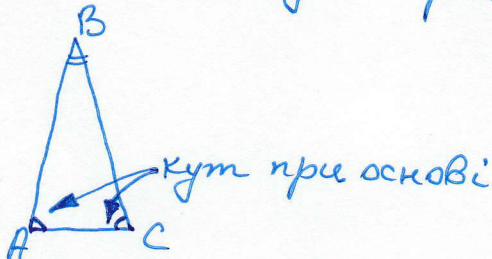 B
кут при основі
A
C